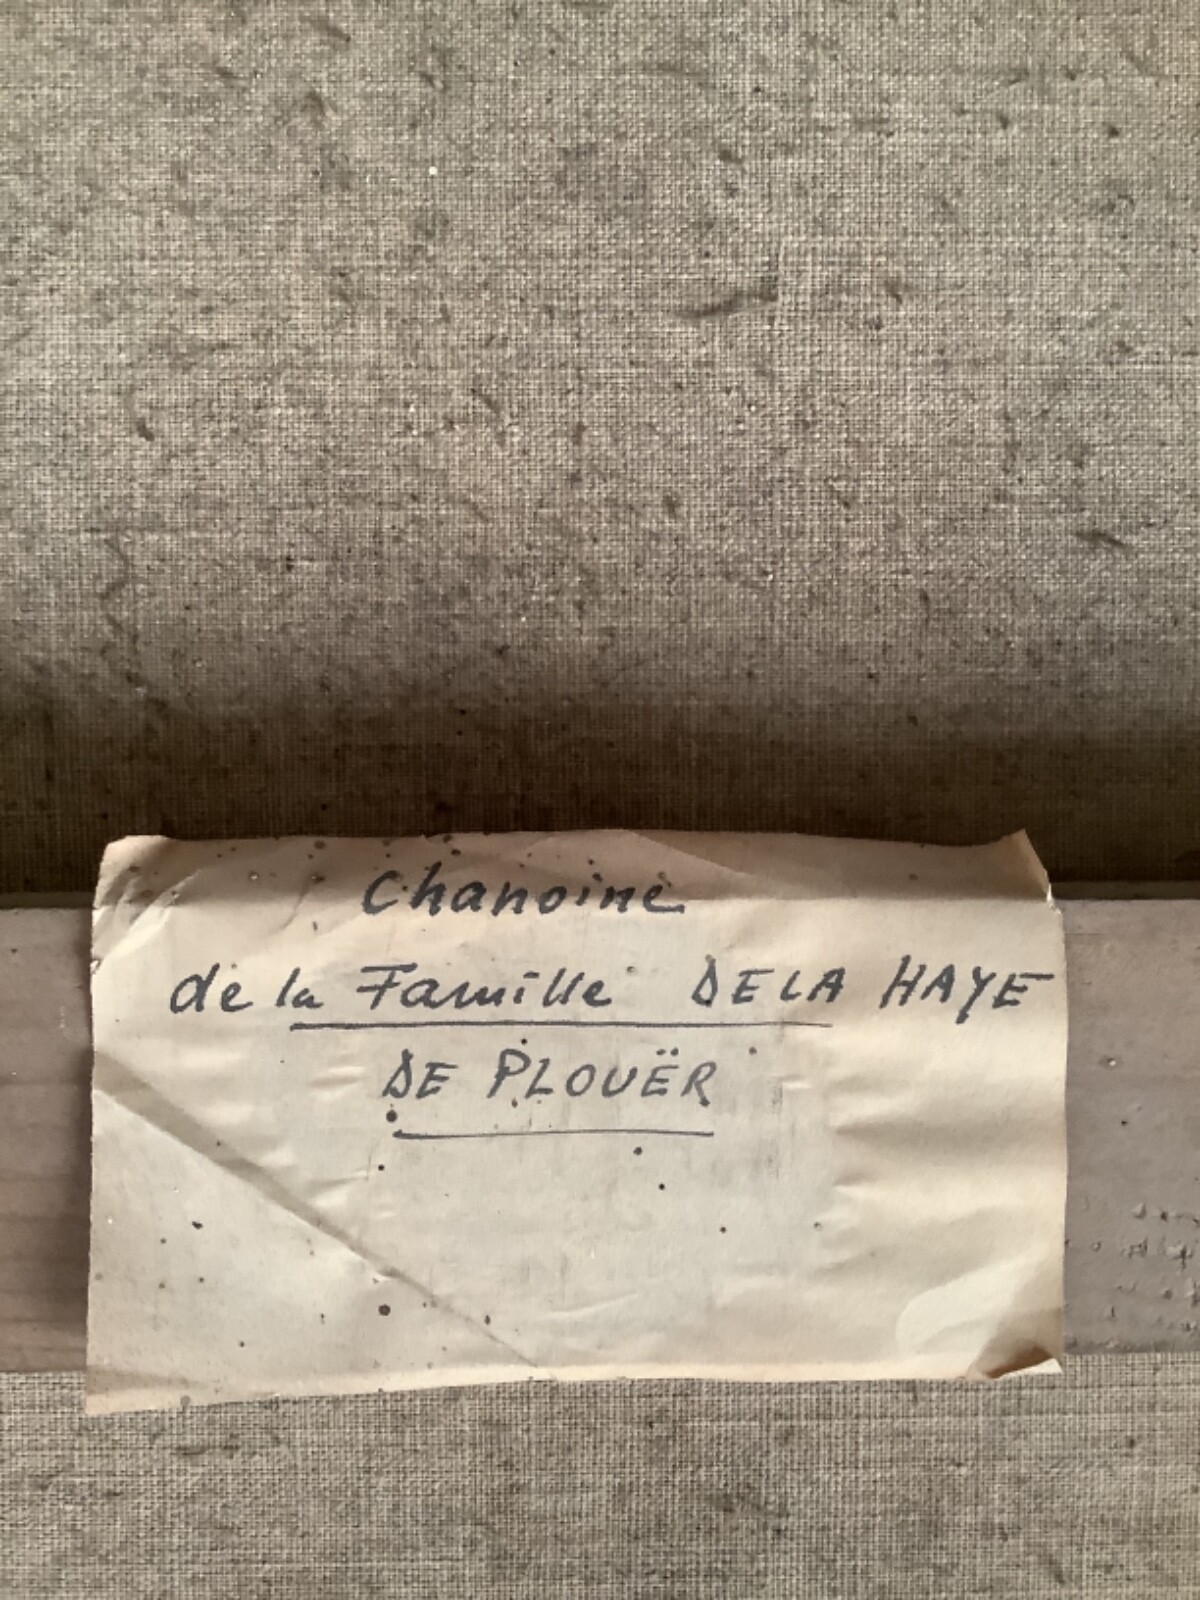 Chanoine
de la Famille DE LA HAYE
DE PLOUËR